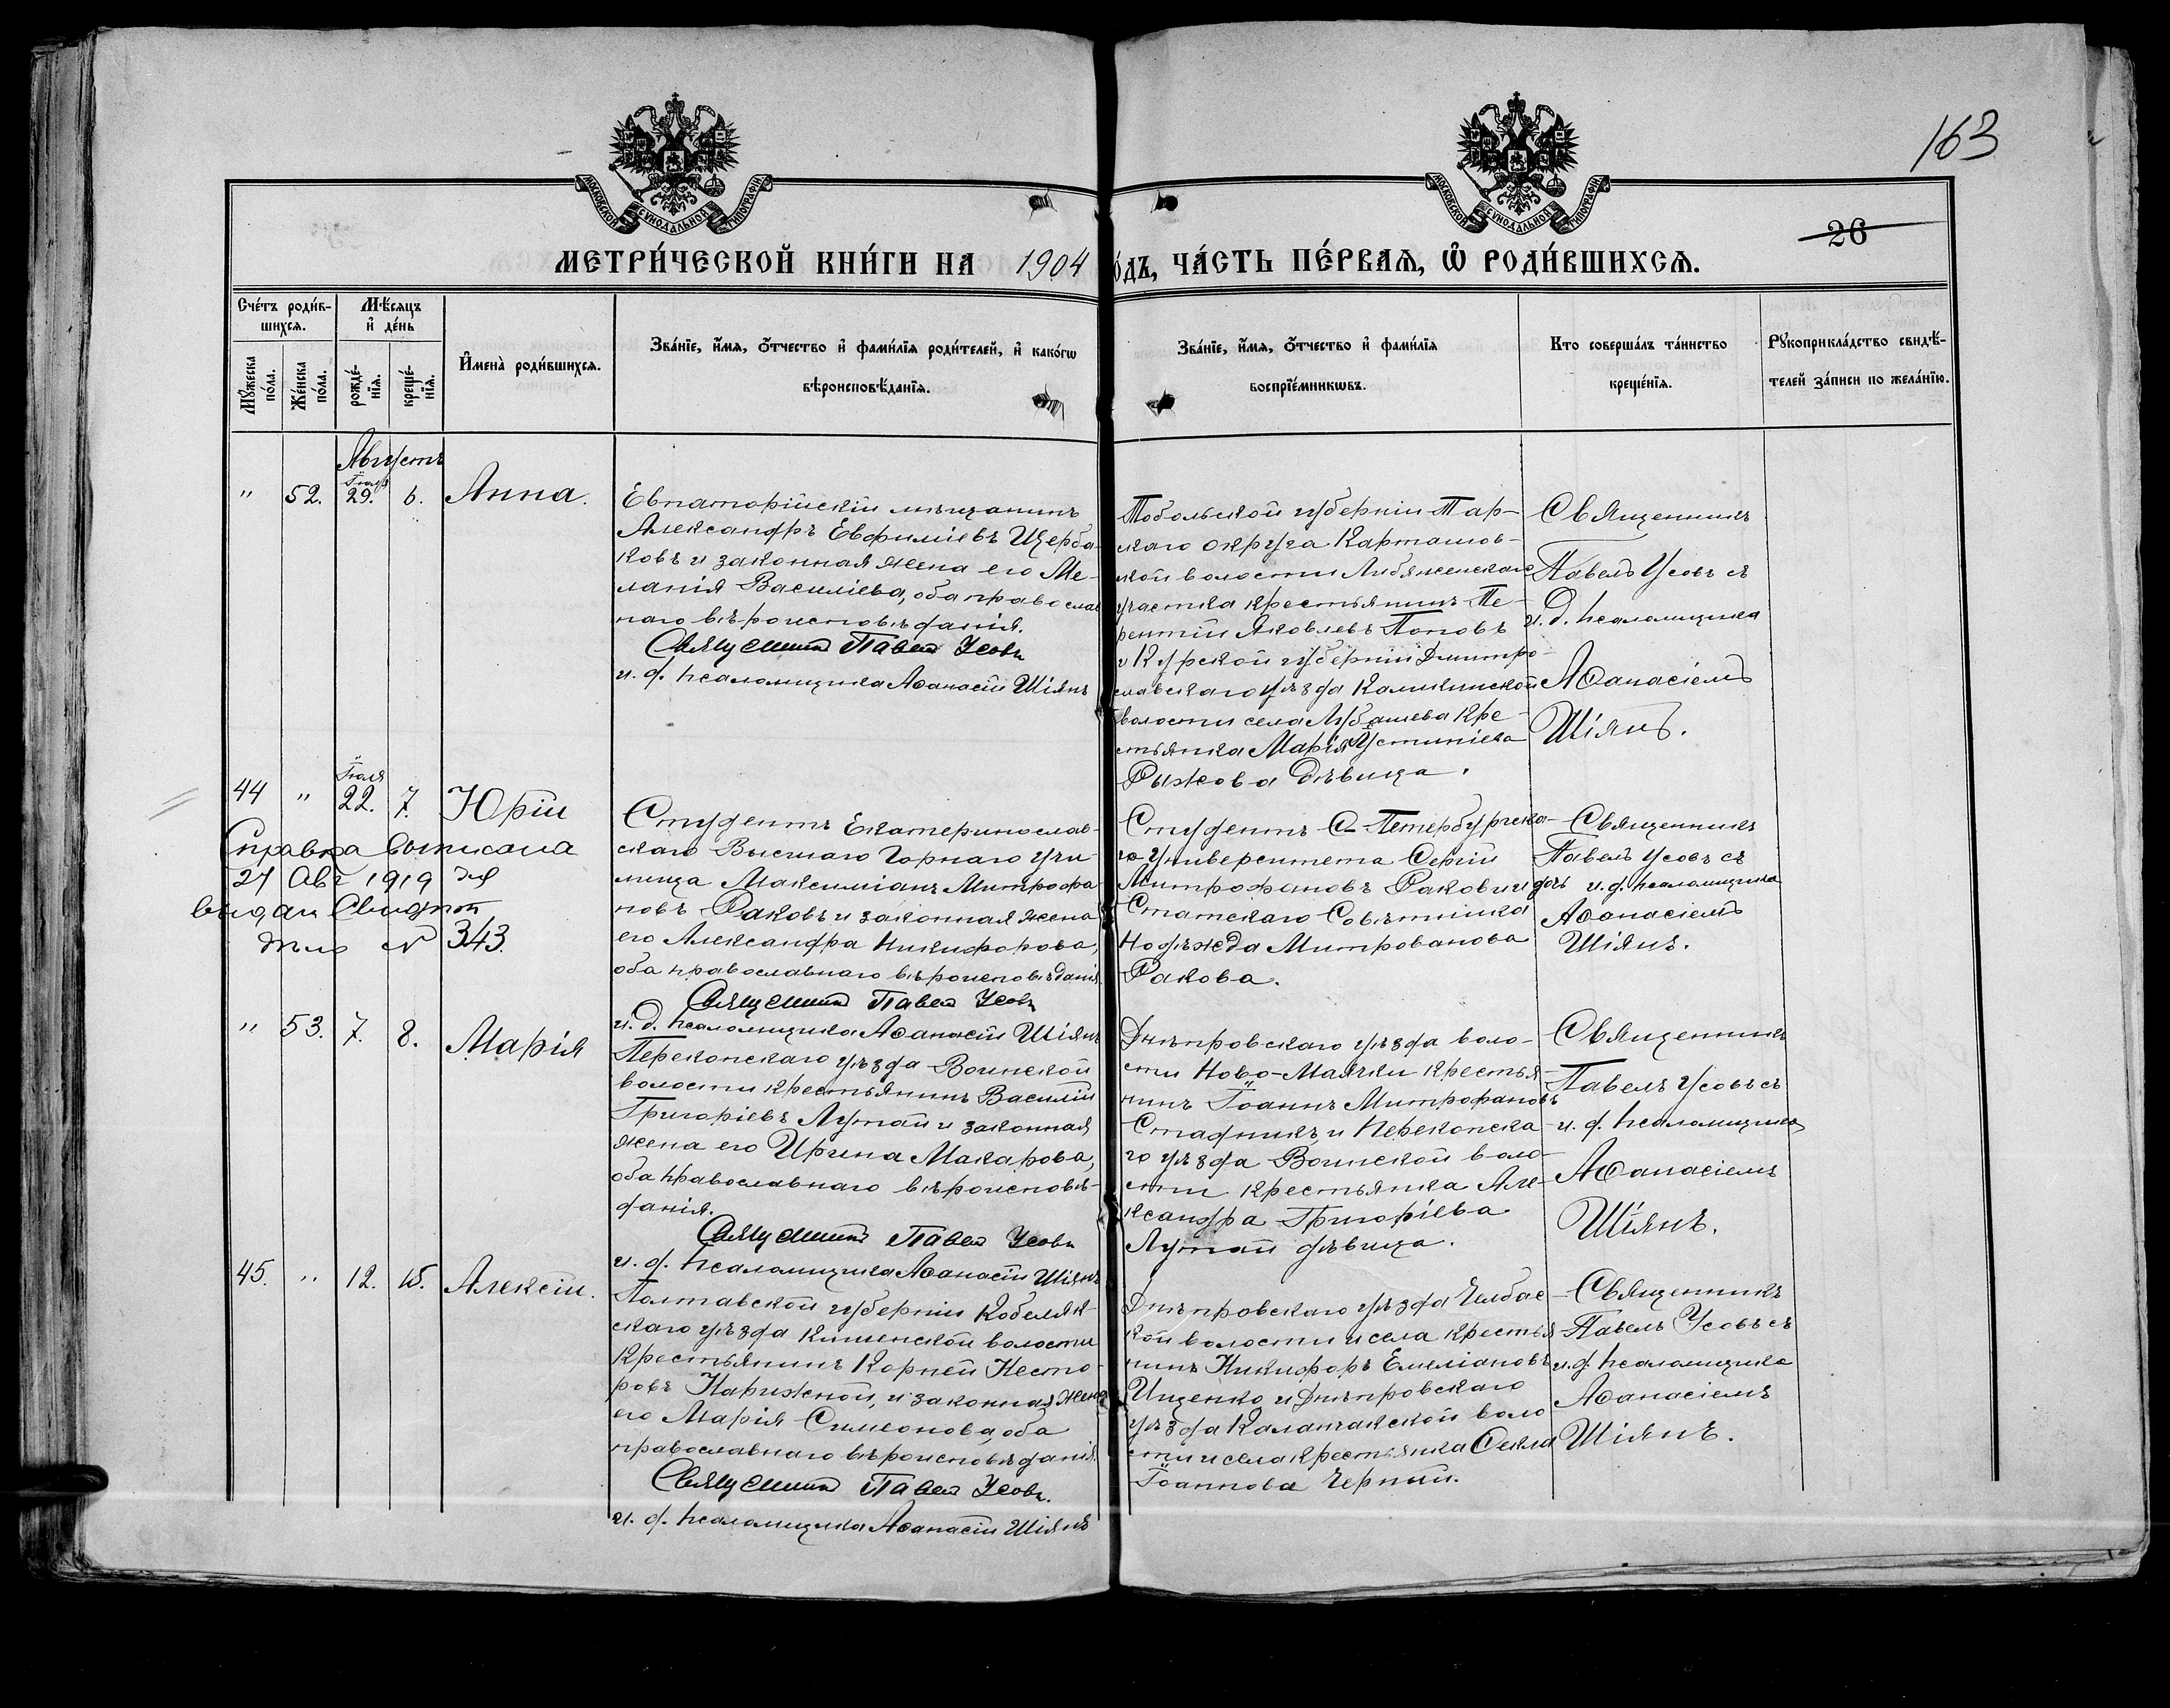 163
26
МОСКОВСКОЙ СУНОДАЛЬНОЙ ТИПОГРАФІИ
МОСКОВСКОЙ СУНОДАЛЬНОЙ ТИПОГРАФІИ
МЕТРИ́ЧЕСКОЙ КНИ́ГИ НА 1904 О́ДЪ, ЧА́СТЬ ПЕ́РВАѦ, Ѡ҆ РОДИ́ВШИХСѦ.
Сче́тъ роди́в-
шихсѧ.
Мꙋ́жеска по́ла.
Же́нска по́ла.
Мѣ́сѧцъ
и҆ де́нь
рожде́-
нїѧ.
креще́-
нїѧ.
И҆мена̀ роди́вшихсѧ.
Зва́нїе, и҆́мѧ, ѻ҆́тчество и҆ фами́лїѧ роди́телей, и҆ како́гѡ
вѣроисповѣ́данїѧ.
Зва́нїе, и҆́мѧ, ѻ҆́тчество и҆ фами́лїѧ
воспрїе́мникѡвъ.
Кто соверша́лъ та́инство
креще́нїѧ.
Рꙋкоприкла́дство свидѣ́-
телей за́писи по жела́нїю.
Августъ
" 52. Іюля 29. 6. Анна.
Евпаторійскій мѣщанинъ
Александръ Евфиміевъ Щерба-
ковъ и законная жена его Ме-
ланія Василіева, оба православ
наго вѣроисповѣданія.
Священникъ Павелъ Усовъ
и. д. псаломщика Аѳанасій Шіянъ
Тобольской губерніи Тар-
скаго округа Карташов-
ской волости Либяженскаго
участка крестьянинъ Те-
рентій Яковлевъ Поповъ
и Курской губерніи Дмитро-
славскаго уѣзда
волости села Лубашева Кре-
стьянка Марія Устиніева
Рыжкова дѣвица.
Священникъ
Павелъ Усовъ съ
и. д. псаломщика
Аѳанасіемъ
Шіянъ.
44 " Іюля 22. 7. Юрій
Справка выписана
27 Авг 1919
выдан
дѣло N 343.
Студентъ Екатеринослав-
скаго Высшаго Горнаго учи-
лища Максиміанъ Митрофа-
новъ Раковъ и законная жена
его Александра Никифорова,
оба православнаго вѣроисповѣданія.
Священникъ Павелъ Усовъ
и. д. псаломщика Аѳанасій Шіянъ
Студентъ С-Петербургска-
го Университета Сергій
Митрофановъ Раковъ и дочь
Статскаго Совѣтника
Надѣжда Митрованова
Ракова.
Священникъ
Павелъ Усовъ съ
и. д. псаломщика
Аѳанасіемъ
Шіянъ.
" 53. 7. 8. Марія
Перекопскаго уѣзда Воинской
волости крестьянинъ Василій
Григоріевъ Лутай и законная
жена его Ирина Макарова,
оба православнаго вѣроисповѣ-
данія.
Священникъ Павелъ Усовъ
и. д. псаломщика Аѳанасій Шіянъ
Днѣпровскаго уѣзда воло-
сти Ново-Маячки крестья-
нинъ Іоаннъ Митрофановъ
Стадникъ и Перекопска-
го уѣзда Воинской воло-
сти крестьянка Але-
ксандра Григоріева
Лутай дѣвица.
Священникъ
Павелъ Усовъ съ
и. д. псаломщика
Аѳанасіемъ
Шіянъ.
45. " 12. 15. Алексій.
Полтавской губерніи Кобеляк-
скаго уѣзда Кишенской волости
Крестьянинъ Корней Несто-
ровъ Нарижной, и законная жена
его Марія Симеонова, оба
православнаго вѣроисповѣданія.
Священникъ Павелъ Усовъ.
и. д. псаломщика Аѳанасій Шіянъ
Днѣпровскаго уѣзда Челбас-
кой волости и села крестья
нинъ Никифоръ Емеліановъ
Ищенко и Днѣпровскаго
уѣзда Каланчакской воло
сти и села крестьянка Ѳекла
Іоаннова Черный.
Священникъ
Павелъ Усовъ съ
и. д. псаломщика
Аѳанасіемъ
Шіянъ.